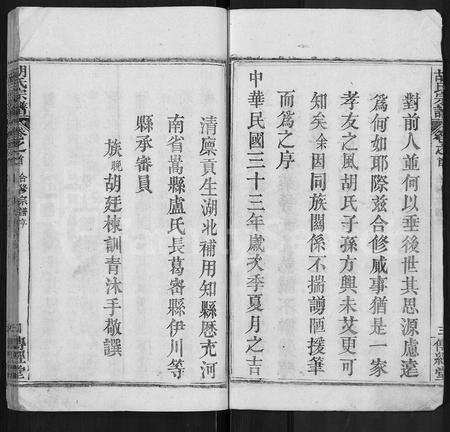 對前人並何以垂後世其思源慮遠
為何如耶際茲合修賦事猶是一家
孝友之風胡氏子孫方興未艾更可
知矣余因同族關係不揣謭陋援筆
而為之序
中華民國三十三年歲次季夏月之吉
清廪貢生湖北補用知縣歷充河
南省嵩縣盧氏長葛密縣伊川等
縣承審員
族晚胡廷棟訓青沐手敬譔
胡氏宗譜
卷之首
合修宗譜序
三
傳經堂